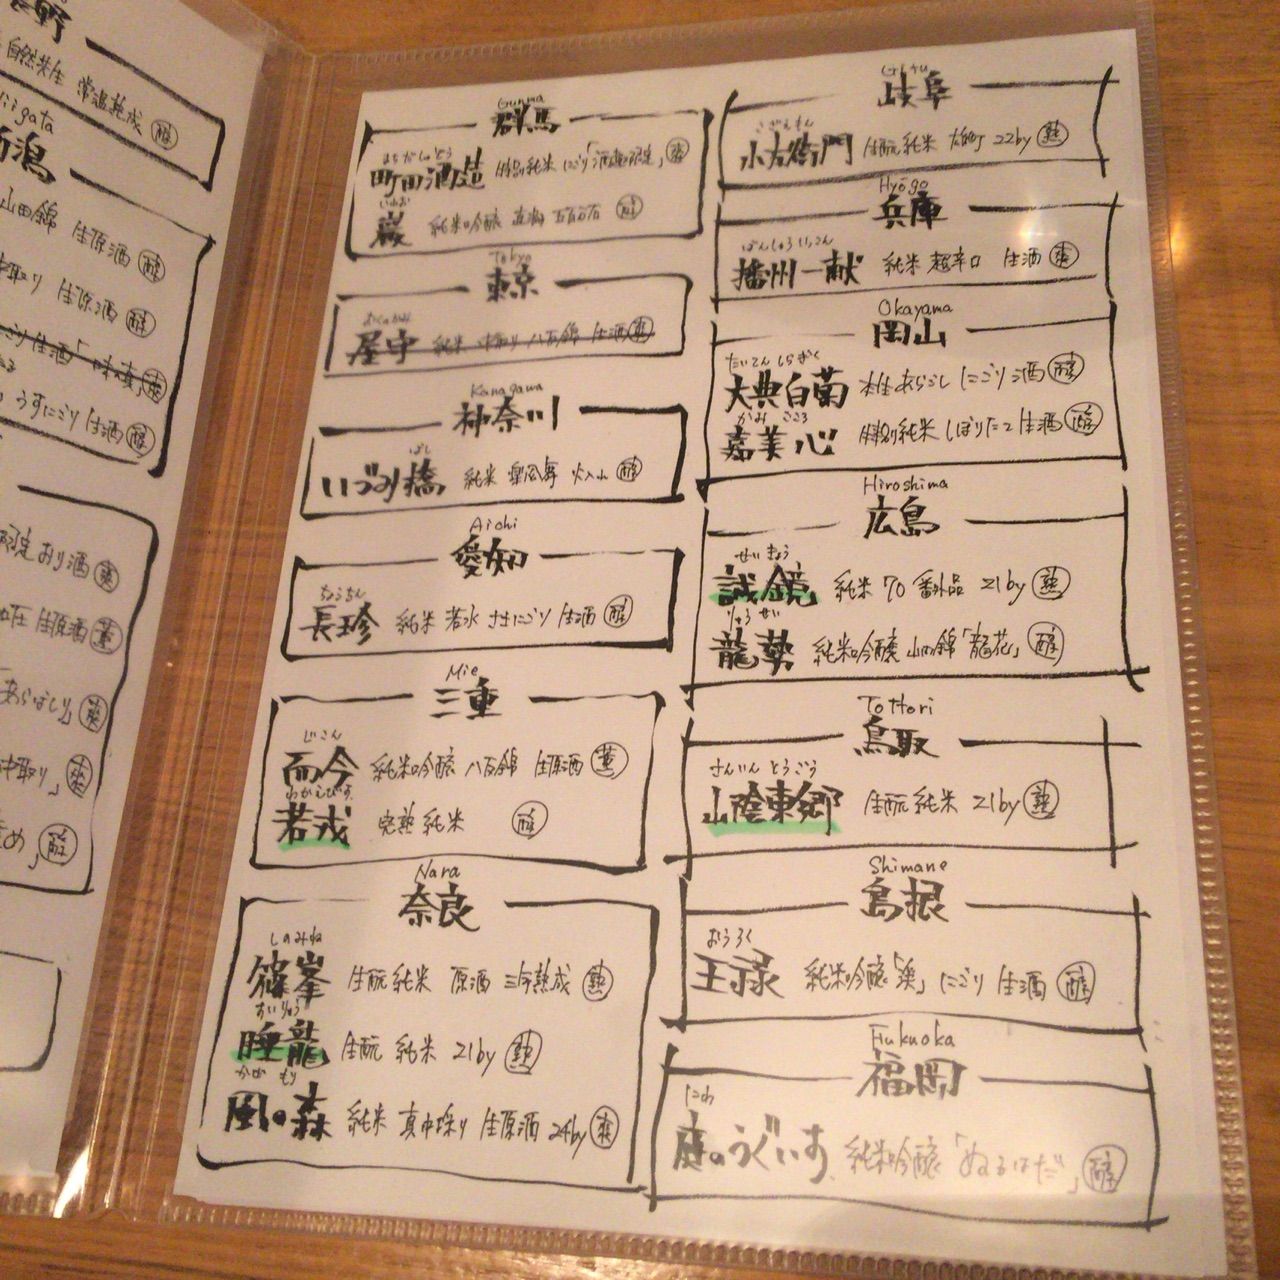 長野
自然共生 常温熟成 醇
Niigata
新潟
山田錦 生原酒 醇
中取り 生原酒 醇
にごり 生酒 「 爽
うすにごり 生酒 醇
限定 おり酒 爽
生原酒 薫
あらばしり」 爽
中取り」 爽
責め」 醇
Gunma
群馬
まちだしゅぞう
町田酒造 特別純米 にごり「酒趣限定」 爽
いわお
巌 純米吟醸 直汲 五百万石 醇
Tokyo
東京
おくのかみ
屋守 純米 中取り 八反錦 生酒 爽
Kanagawa
神奈川
ばし
いづみ橋 純米 楽風舞 火入れ 醇
Aichi
愛知
ちょうちん
長珍 純米 若水 ささにごり 生酒 醇
Mie
三重
じこん
而今 純米吟醸 八反錦 生原酒 薫
わかえびす
若戎 完熟純米 醇
Nara
奈良
しのみね
篠峯 生酛純米 原酒 三年熟成 熟
すいりゅう
睡龍 生酛 純米 21by 熟
かぜ もり
風の森 純米 真中採り 生原酒 24by 爽
Gifu
岐阜
こざえもん
小左衛門 生酛純米 雄町 22by 熟
Hyōgo
兵庫
ばんしゅういっこん
播州一献 純米 超辛口 生酒 爽
Okayama
岡山
たいてん しらぎく
大典白菊 あらごし にごり酒 醇
かみ こころ
嘉美心 特別純米 しぼりたて 生酒 醇
Hiroshima
広島
せいきょう
誠鏡 純米 70 番外品 21by 熟
りゅうせい
龍勢 純米吟醸 山田錦「龍花」 醇
Tottori
鳥取
さんいん とうごう
山陰東郷 生酛純米 21by 熟
Shimane
島根
おうろく
王祿 純米吟醸「渓」にごり 生酒 醇
Fukuoka
福岡
にわ
庭のうぐいす 純米吟醸「ぬるはだ」 醇